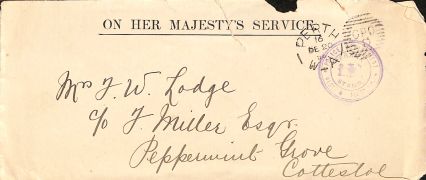 ON HER MAJESTY'S SERVICE.
PERTH
Mrs F. W. Lodge
c/o F. Miller Esqr.
Peppermint Grove
Cottesloe